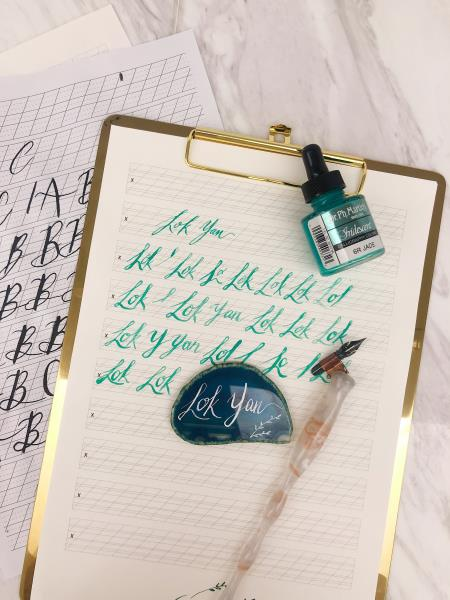 C
A B
B B
B
B
B
Dr. Ph. Martin
Iridescent
6R JADE
Lok Yan
Lok Lok Lok Lok Lok
Lok Lok Yan Lok Lok Lok
Lok Y Yan
Lok Lok
Lok Yan